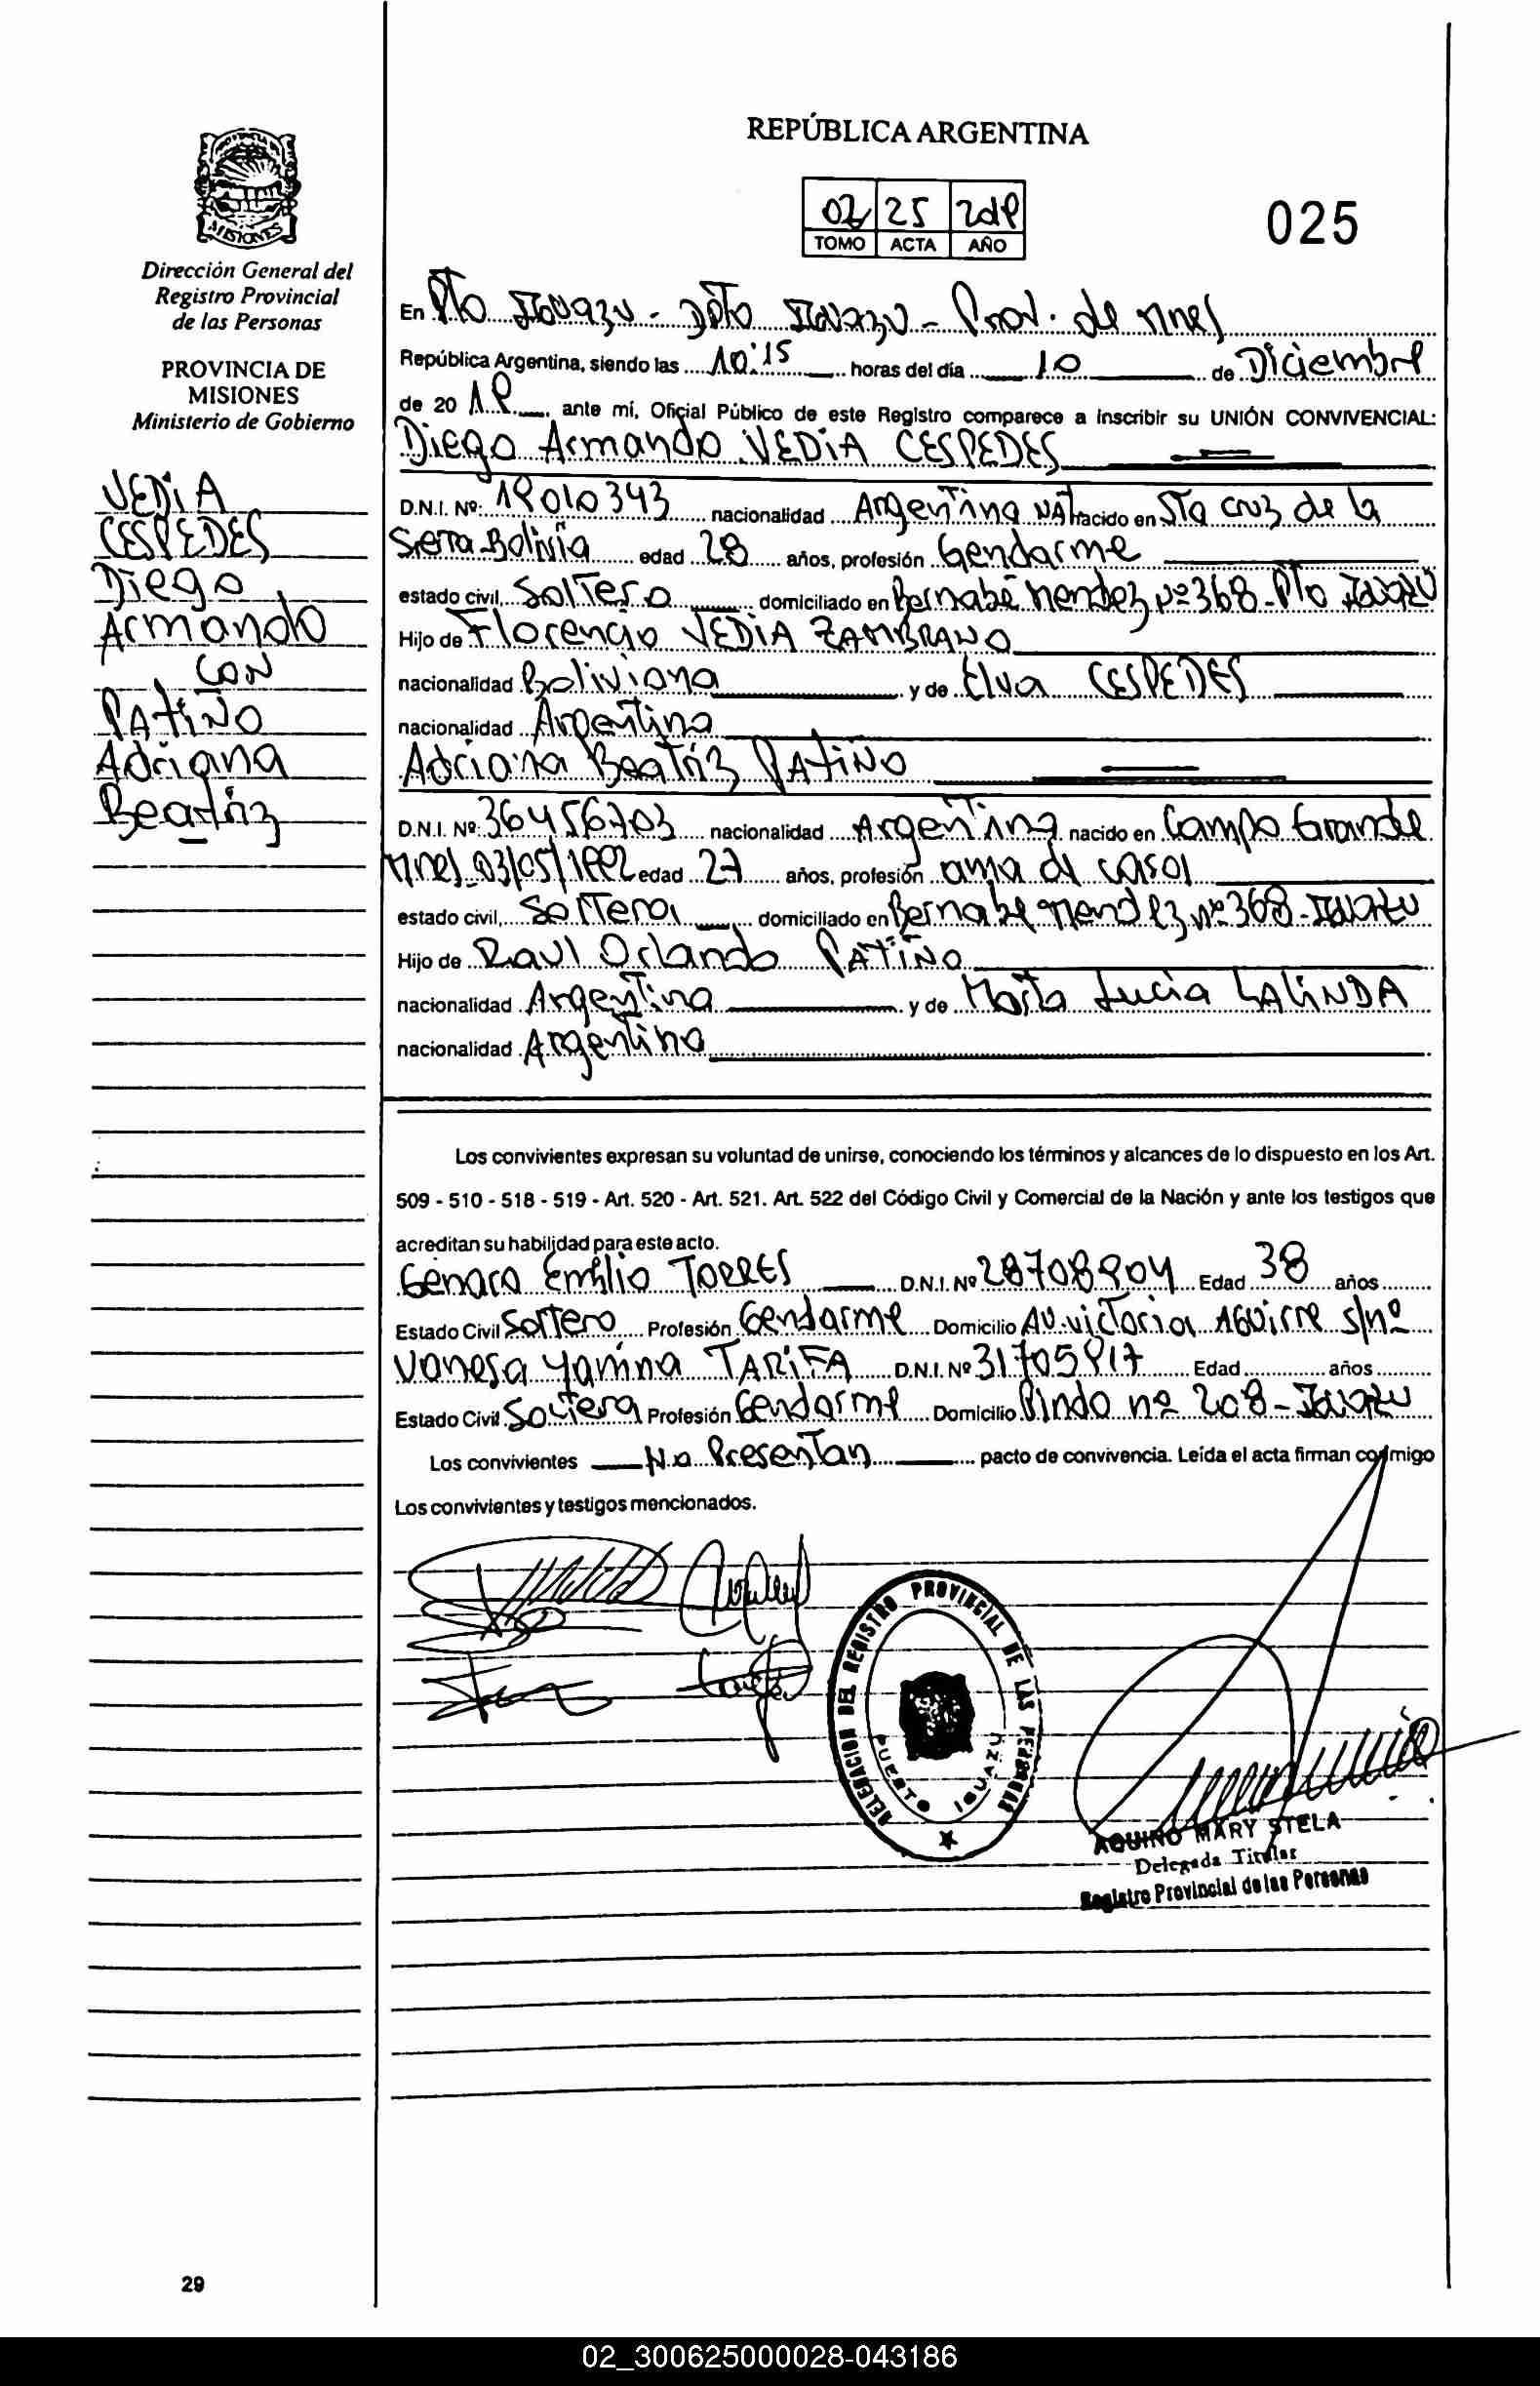 REPÚBLICA ARGENTINA
02 25 2019
TOMO ACTA AÑO
025
MISIONES
Dirección General del
Registro Provincial
de las Personas
PROVINCIA DE
MISIONES
Ministerio de Gobierno
VEDIA
CESPEDES
Diego
Armando
CON
PATIÑO
Adriana
Beatriz
En Pto Iguazu - Dpto Iguazu - Prov. de Mnes
República Argentina, siendo las 10:15 horas del día 10 de Diciembre
de 20 19 ante mí, Oficial Público de este Registro comparece a inscribir su UNIÓN CONVIVENCIAL:
Diego Armando VEDIA CESPEDES
D.N.I. Nº: 19010343 nacionalidad Argentina NAT nacido en Sta Cruz de la
Sierra Bolivia edad 28 años, profesión Gendarme
estado civil, Soltero domiciliado en Bernabé Mendez Nº 368 - Pto Iguazú
Hijo de Florencio VEDIA ZAMBRANO
nacionalidad Boliviana y de Elva CESPEDES
nacionalidad Argentina
Adriana Beatriz PATIÑO
D.N.I. Nº: 36456703 nacionalidad Argentina nacido en Campo Grande
Mnes 03/05/1992 edad 27 años, profesión ama de casa
estado civil, Soltera domiciliado en Bernabe Mendez Nº 368 - Iguazu
Hijo de Raul Orlando PATIÑO
nacionalidad Argentina y de Marta Lucia LALINDA
nacionalidad Argentina
Los convivientes expresan su voluntad de unirse, conociendo los términos y alcances de lo dispuesto en los Art.
509 - 510 - 518 - 519 - Art. 520 - Art. 521. Art. 522 del Código Civil y Comercial de la Nación y ante los testigos que
acreditan su habilidad para este acto.
Genaro Emilio TORRES D.N.I. Nº 28708904 Edad 38 años
Estado Civil Soltero Profesión Gendarme Domicilio Av. Victoria Aguirre s/nº
Vanesa Yamina TARIFA D.N.I. Nº 31705917 Edad años
Estado Civil Soltera Profesión Gendarme Domicilio Pindo nº 208 - Iguazu
Los convivientes No Presentan pacto de convivencia. Leída el acta firman conmigo
Los convivientes y testigos mencionados.
DELEGACION DEL REGISTRO PROVINCIAL DE LAS PERSONAS
PUERTO IGUAZU
AQUINO MARY STELA
Delegada Titular
Registro Provincial de las Personas
29
02_300625000028-043186